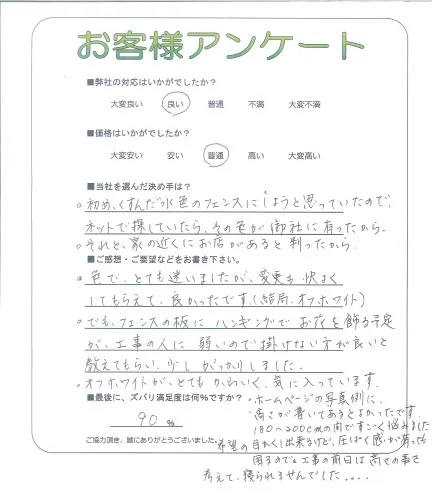 お客様アンケート
■弊社の対応はいかがでしたか？
大変良い 良い 普通 不満 大変不満
■価格はいかがでしたか？
大変安い 安い 普通 高い 大変高い
■当社を選んだ決め手は？
。初め、くすんだ水色のフェンスにしようと思っていたので、
ネットで探していたら、その色が御社に有ったから。
。それと、家の近くにお店があると判ったから。
■ご感想・ご要望などをお書き下さい。
。色で、とても迷いましたが、変更も快よく
してもらえて、良かったです。(結局、オフホワイト)
。でも、フェンスの板にハンギングでお花を飾る予定
が、工事の人に弱いので掛けない方が良いと
教えてもらい、少しがっかりしました。
。オフホワイトが、とてもかわいく、気に入っています。
■最後に、ズバリ満足度は何%ですか？
90 %
ご協力頂き、誠にありがとうございました。
。ホームページの写真例に、
高さが書いてあるとよかったです
180～200cmの間ですごく悩みました
希望の目かくし出来るけど、圧ぱく感が有っても
困るので。工事の前日は高さの事を
考えて、寝られませんでした....